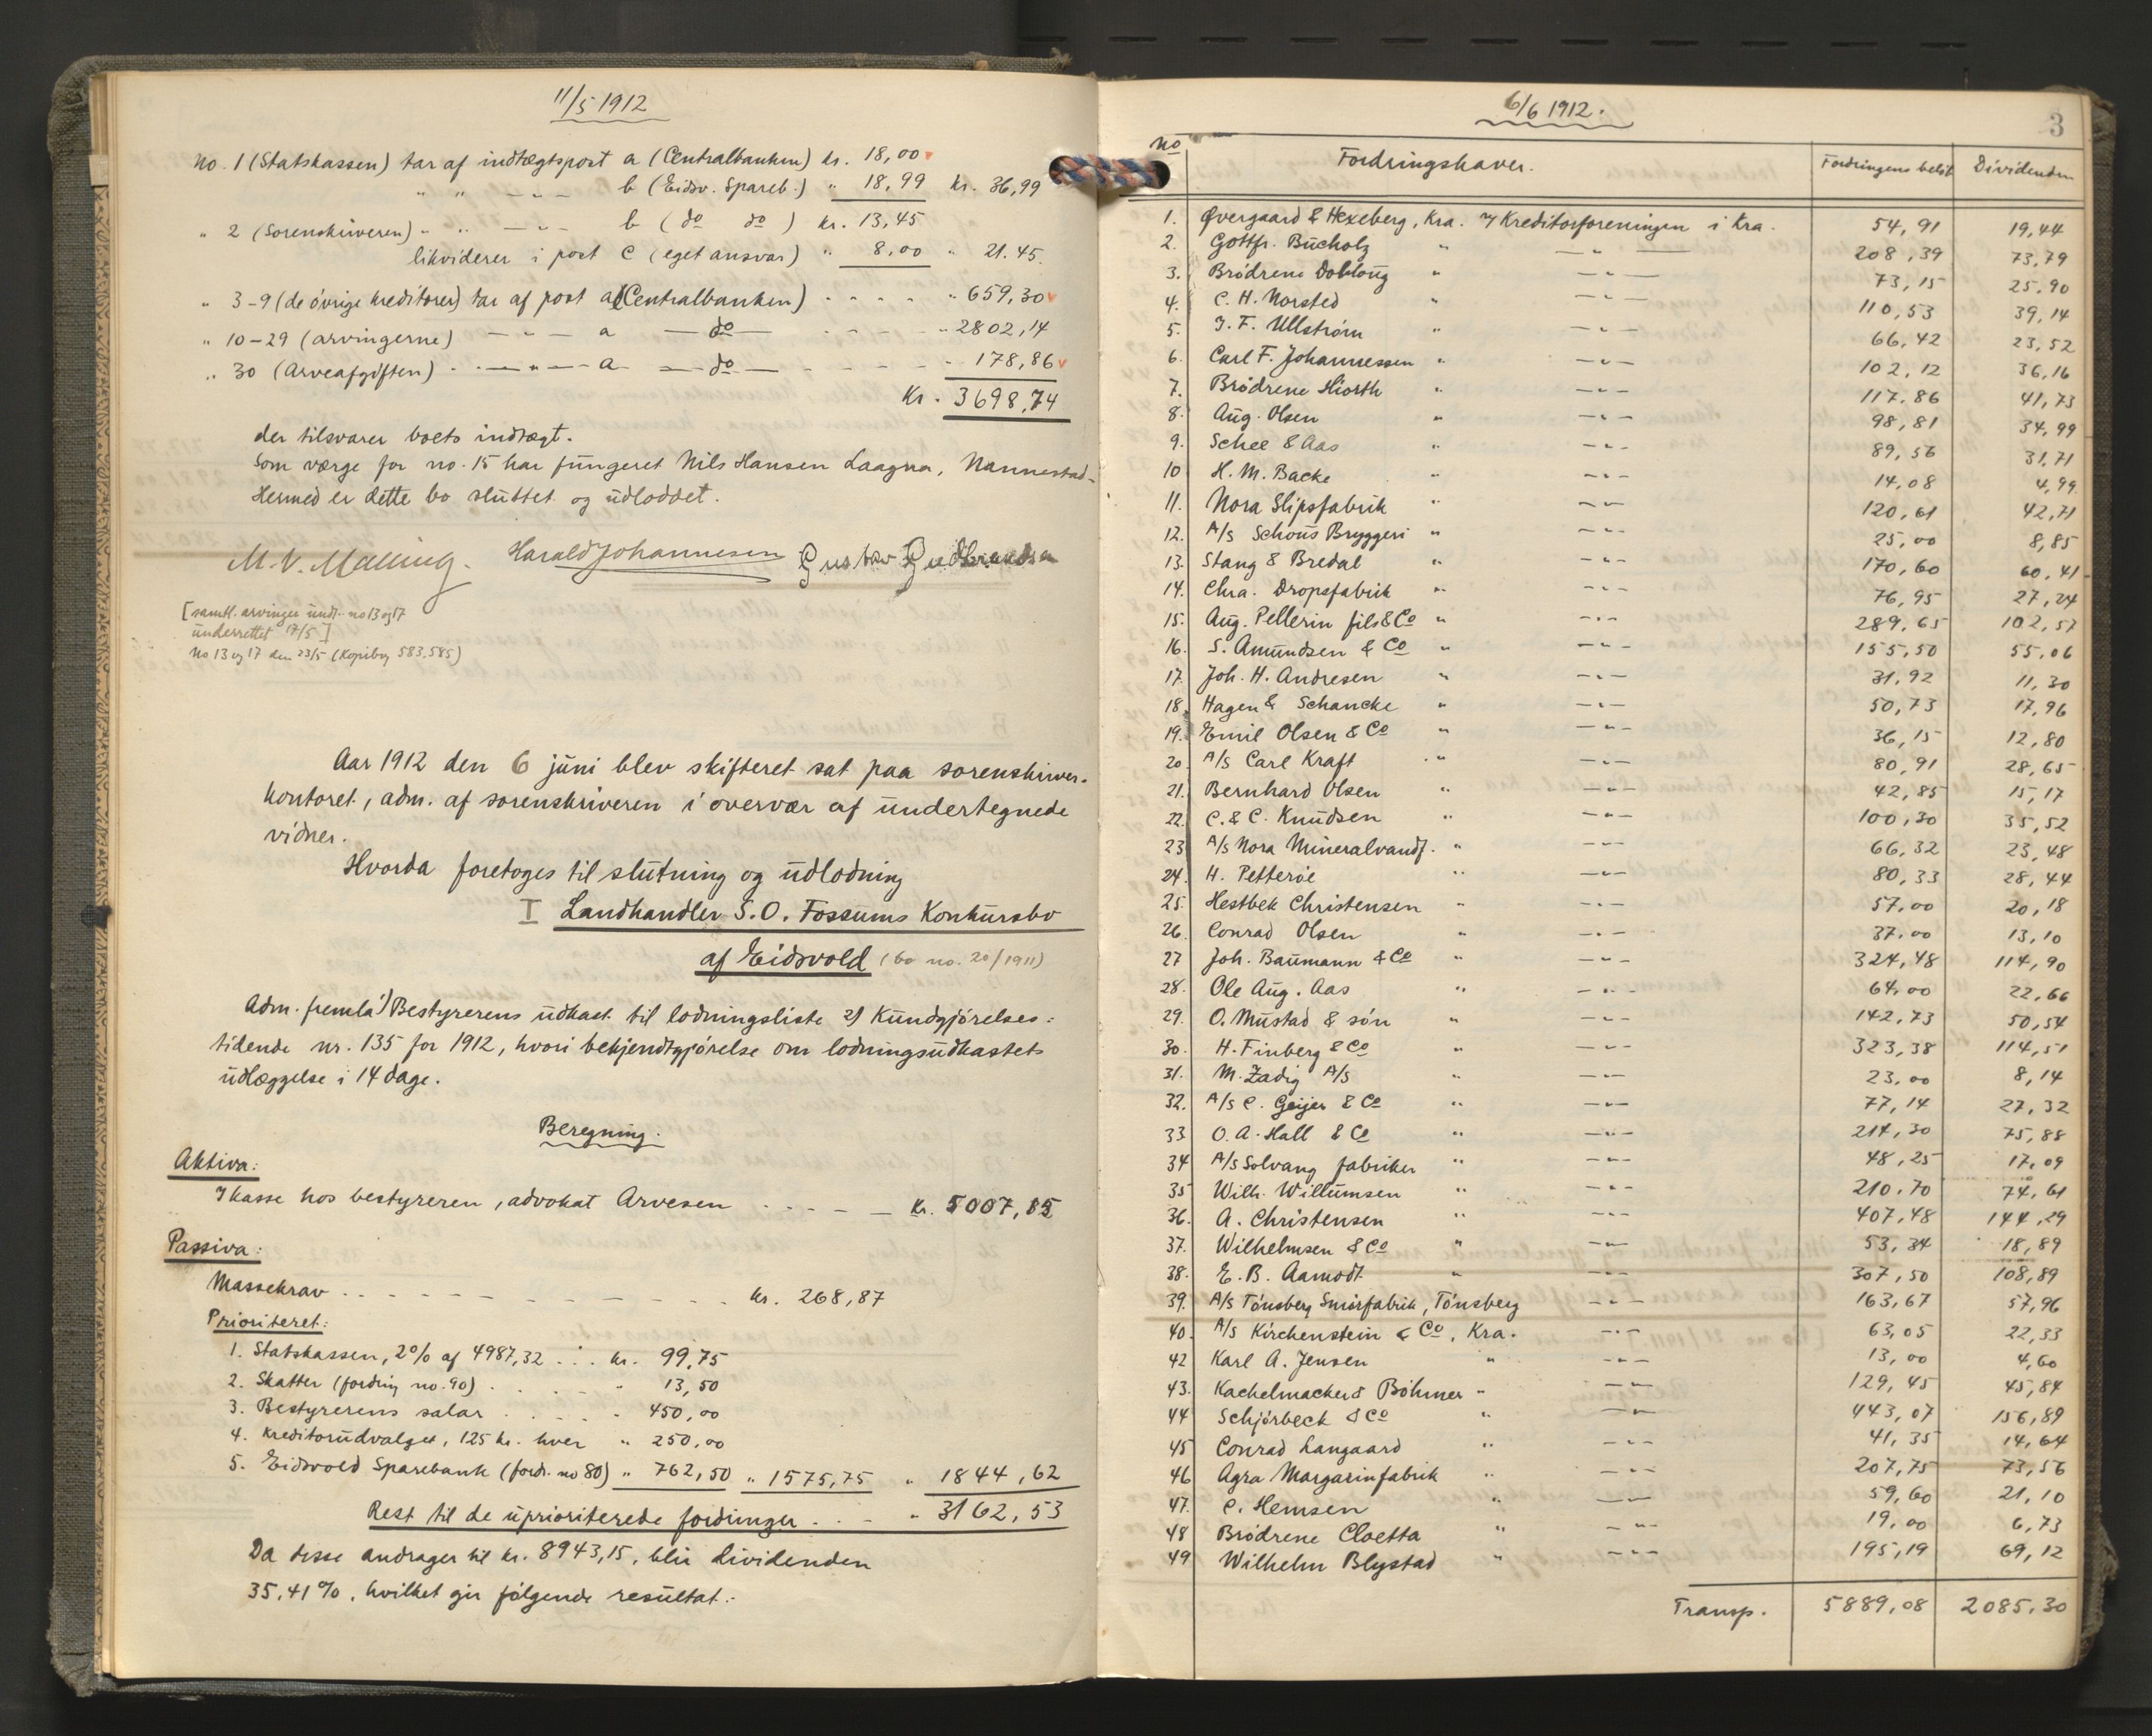 11/5 1912
No. 1 (Statskassen) tar af indtægtspost a (Centralbanken) kr. 18,00
" " — " — b (Eidsv. Spareb.) " 18,99 kr. 36,99
" 2 (Sorenskriveren) " " — " — b (do do) kr. 13,45
likviderer i post C (eget ansvar) " 8,00 " 21.45.
" 3-9 (de övrige kreditorer) tar af post a (Centralbanken) . . . . " 659,30
" 10-29 (arvingerne) — " — a — do — . . . . " 2802,14
" 30 (Arveafgiften) . — " — a — do — . . . . " 178,86
Kr. 3698,74
der tilsvarer boets indtægt.
Som værge for no. 15 har fungeret Nils Hansen Laagna, Nannestad.
Hermed er dette bo sluttet og udloddet.
M. V. Malling. Harald Johannesen Gustav Gudbrandsen
[samtl. arvinger undt. no 13 og 17
underrettet 17/5]
No 13 og 17 den 23/5 (Kopibog 583, 585)
Aar 1912 den 6 juni blev skifteret sat paa sorenskriver-
kontoret, adm. af sorenskriveren i overvær af undertegnede
vidner.
Hvorda foretoges til slutning og udlodning
I Landhandler S. O. Fossums Konkursbo
af Eidsvold (bo no. 20/1911)
Adm. fremla 1) Bestyrerens udkast til lodningsliste 2) Kundgjörelses:
tidende nr. 135 for 1912, hvori bekjendtgjörelse om lodningsudkastets
udlæggelse i 14 dage.
Beregning:
Aktiva:
I kasse hos bestyreren, advokat Arvesen . . . . — kr. 5007,85
Passiva:
Massekrav . . . . . . . . . . kr. 268,87
Prioriteret:
1. Statskassen, 2% af 4987,32 . . . kr. 99,75
2. Skatter (fordring no. 90) . . . . " 13,50
3. Bestyrerens salær . . . . . " 450,00
4. Kreditorudvalget, 125 kr. hver " 250,00
5. Eidsvold Sparebank (ford. no 80) " 762,50 " 1575,75 " 1844,62
Rest til de uprioriterede fordringer . . . " 3162,53
Da disse andrager til kr. 8943,15, blir dividenden
35,41%, hvilket gir følgende resultat:
6/6 1912.
3
No Fordringshaver. Fordringens belöb Dividenden
1. Øvergaard & Hexeberg, Kra. v/ Kreditorforeningen i Kra. 54,91 19,44
2. Gottfr. Bucholz " — " — 208,39 73,79
3. Brödrene Dobloug " — " — 73,15 25,90
4. C. H. Norsted " — " — 110,53 39,14
5. J. F. Ullström " — " — 66,42 23,52
6. Carl F. Johannessen " — " — 102,12 36,16
7. Brödrene Hiorth " — " — 117,86 41,73
8. Aug. Olsen " — " — 98,81 34,99
9. Schee & Aas " — " — 89,56 31,71
10 H. M. Backe " — " — 14,08 4,99
11. Nora Slipsfabrik " — " — 120,61 42,71
12. A/S Schous Bryggeri " — " — 25,00 8,85
13. Stang & Bredal " — " — 170,60 60,41
14. Chra. Dropsfabrik " — " — 76,95 27,24
15. Aug. Pellerin fils & Co " — " — 289,65 102,57
16. S. Amundsen & Co " — " — 155,50 55,06
17. Joh. H. Andresen " — " — 31,92 11,30
18. Hagen & Schancke " — " — 50,73 17,96
19. Emil Olsen & Co " — " — 36,15 12,80
20. A/S Carl Kraft " — " — 80,91 28,65
21. Bernhard Olsen " — " — 42,85 15,17
22. C. & C. Knudsen " — " — 100,30 35,52
23 A/S Nora Mineralvandf. " — " — 66,32 23,48
24. H. Petteröe " — " — 80,33 28,44
25. Hestbek Christensen " — " — 57,00 20,18
26. Conrad Olsen " — " — 37,00 13,10
27 Joh. Baumann & Co " — " — 324,48 114,90
28. Ole Aug. Aas " — " — 64,00 22,66
29. O. Mustad & sön " — " — 142,73 50,54
30. H. Finberg & Co " — " — 323,38 114,51
31. M. Zadig A/S " — " — 23,00 8,14
32. A/S C. Geijer & Co " — " — 77,14 27,32
33 O. A. Hall & Co " — " — 214,30 75,88
34 A/S Solvang fabriker " — " — 48,25 17,09
35 Wilh. Willumsen " — " — 210,70 74,61
36. A. Christensen " — " — 407,48 144,29
37. Wilhelmsen & Co " — " — 53,34 18,89
38. E. B. Aamodt " — " — 307,50 108,89
39. A/S Tönsberg Smörfabrik, Tönsberg — " — 163,67 57,96
40. A/S Kirchenstein & Co, Kra. — " — 63,05 22,33
42 Karl A. Jensen " — " — 13,00 4,60
43. Kachelmacker & Böhmer " — " — 129,45 45,84
44 Schjörbeck & Co " — " — 443,07 156,89
45 Conrad Langaard " — " — 41,35 14,64
46 Agra Margarinfabrik " — " — 207,75 73,56
47. C. Hemsen " — " — 59,60 21,10
48 Brödrene Cloetta " — " — 19,00 6,73
49 Wilhelm Blystad " — " — 195,19 69,12
Transp. 5889,08 2085,30